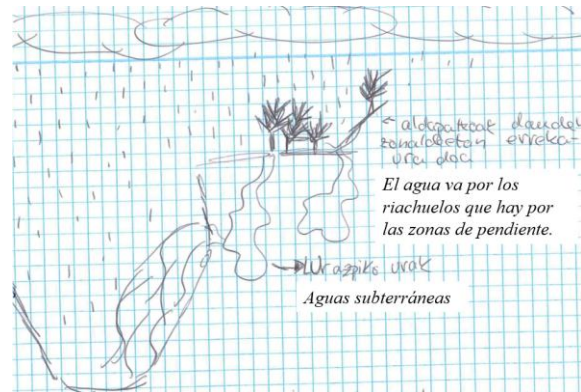 ← aldapatxoak dauden
zonaldetan erreka-
ura doa
El agua va por los
riachuelos que hay por
las zonas de pendiente.
→ Lur azpiko urak
Aguas subterráneas